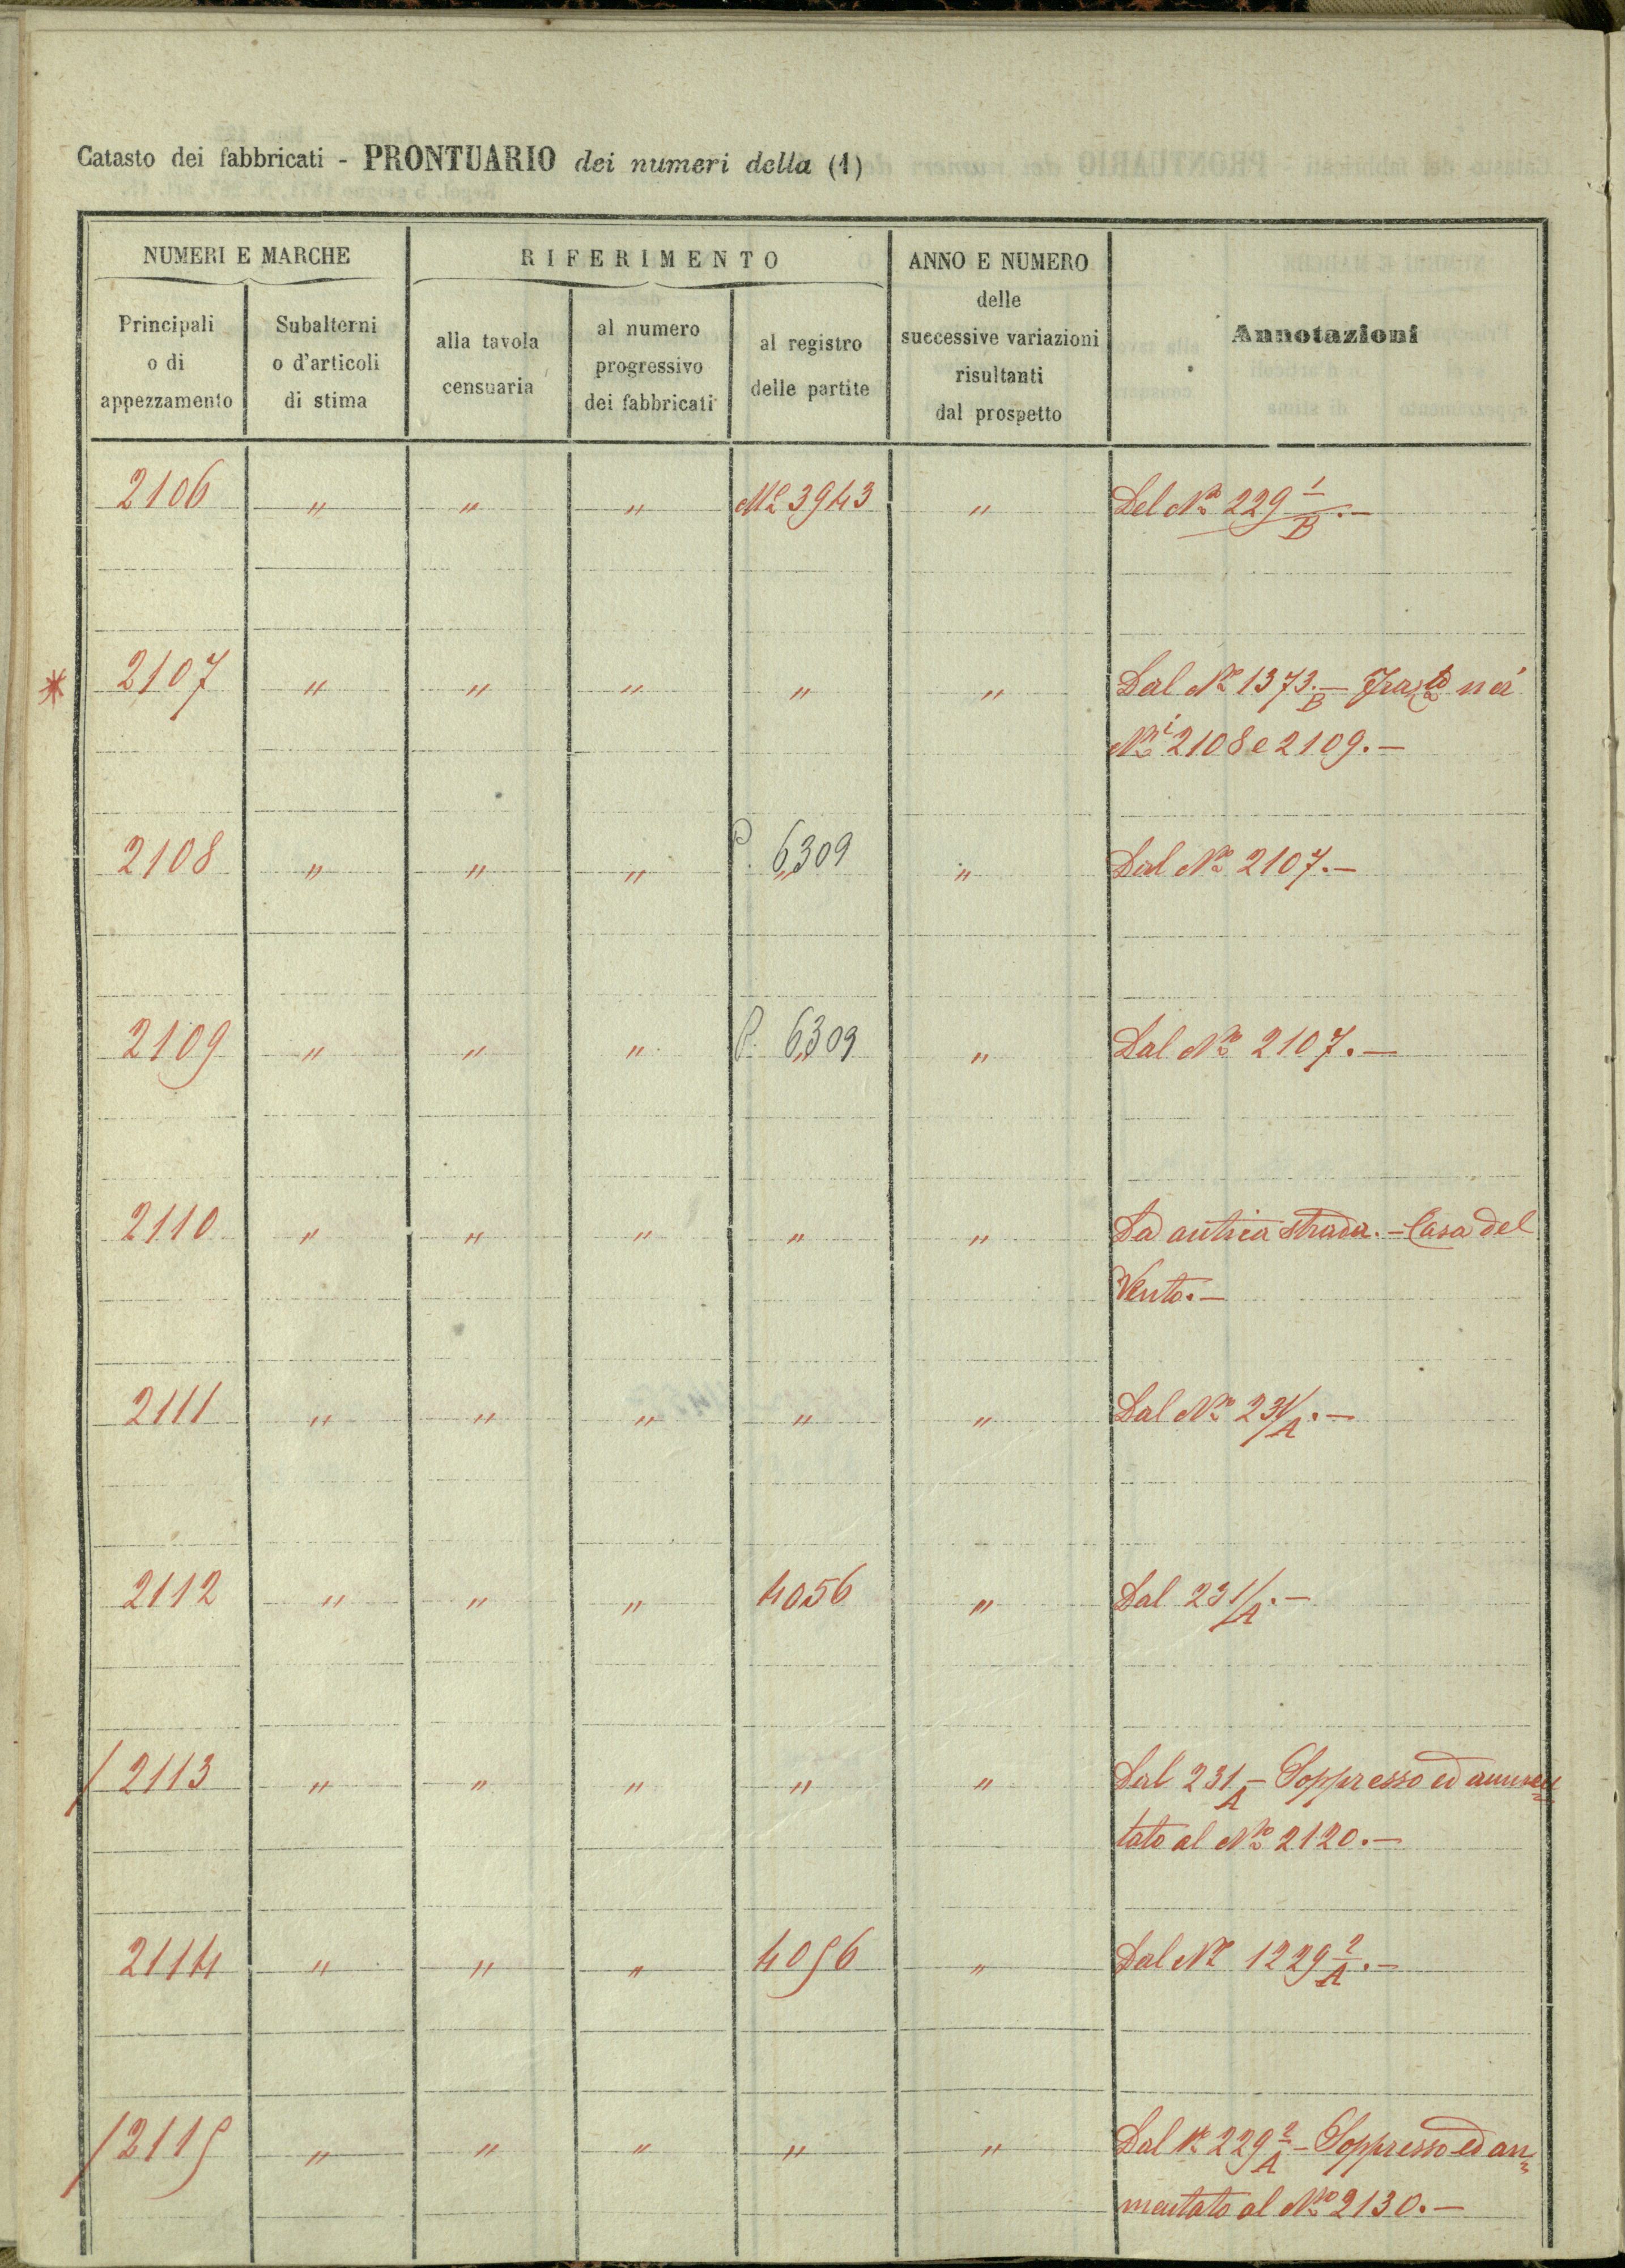 Catasto dei fabbricati - PRONTUARIO dei numeri della (1)
NUMERI E MARCHE
RIFERIMENTO
ANNO E NUMERO
delle
successive variazioni
risultanti
dal prospetto
Annotazioni
Principali
o di
appezzamento
Subalterni
o d'articoli
di stima
alla tavola
censuaria
al numero
progressivo
dei fabbricati
al registro
delle partite
2106 " " " 3943 " Del No 229 1/B.—
* 2107 " " " " " Dal No 1373/B.— ne'
Ni 2108 e 2109.—
2108 " " " P. 6309 " Dal No 2107.—
2109 " " " P. 6309 " Dal No 2107.—
2110 " " " " " Da antica strada.— Casa del
Vento.—
2111 " " " " " Dal No 231/A.—
2112 " " " 4056 " Dal 231/A.—
/ 2113 " " " " " Dal 231/A — Soppresso ed aumen=
tato al No 2120.—
2114 " " " 4056 " Dal No 1229 2/A.—
/ 2115 " " " " " Dal No 229 2/A — Soppresso ed au=
mentato al No 2130.—